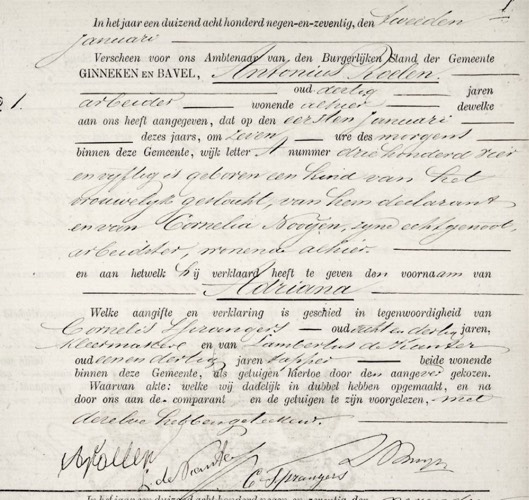 In het jaar een duizend acht honderd negen-en-zeventig, den tweeden
januari
Verscheen voor ons Ambtenaar van den Burgerlijken Stand der Gemeente
GINNEKEN EN BAVEL, Antonius Koden
oud dertig jaren
1. arbeider wonende alhier dewelke
aan ons heeft aangegeven, dat op den eersten Januari
dezes jaars, om zeven ure des morgens
binnen deze Gemeente, wijk letter A nummer driehonderd vier
en vijftig is geboren een kind van het
vrouwelijk geslacht, van hem declarant
en van Cornelia Nooijen, zijne echtgenoot,
arbeidster, wonende alhier.
en aan hetwelk hij verklaard heeft te geven den voornaam van
Adriana
Welke aangifte en verklaring is geschied in tegenwoordigheid van
Cornelis Sprangers oud acht en dertig jaren,
kleermaker en van Lambertus de Kanter
oud een en dertig jaren tapper beide wonende
binnen deze Gemeente, als getuigen hiertoe door den aangever gekozen.
Waarvan akte: welke wij dadelijk in dubbel hebben opgemaakt, en na
door ons aan de comparant en de getuigen te zijn voorgelezen, met
dezelve hebben geteekend.
L. de Kanter
C. Sprangers
In het jaar een duizend acht honderd negen-en-zeventig, den